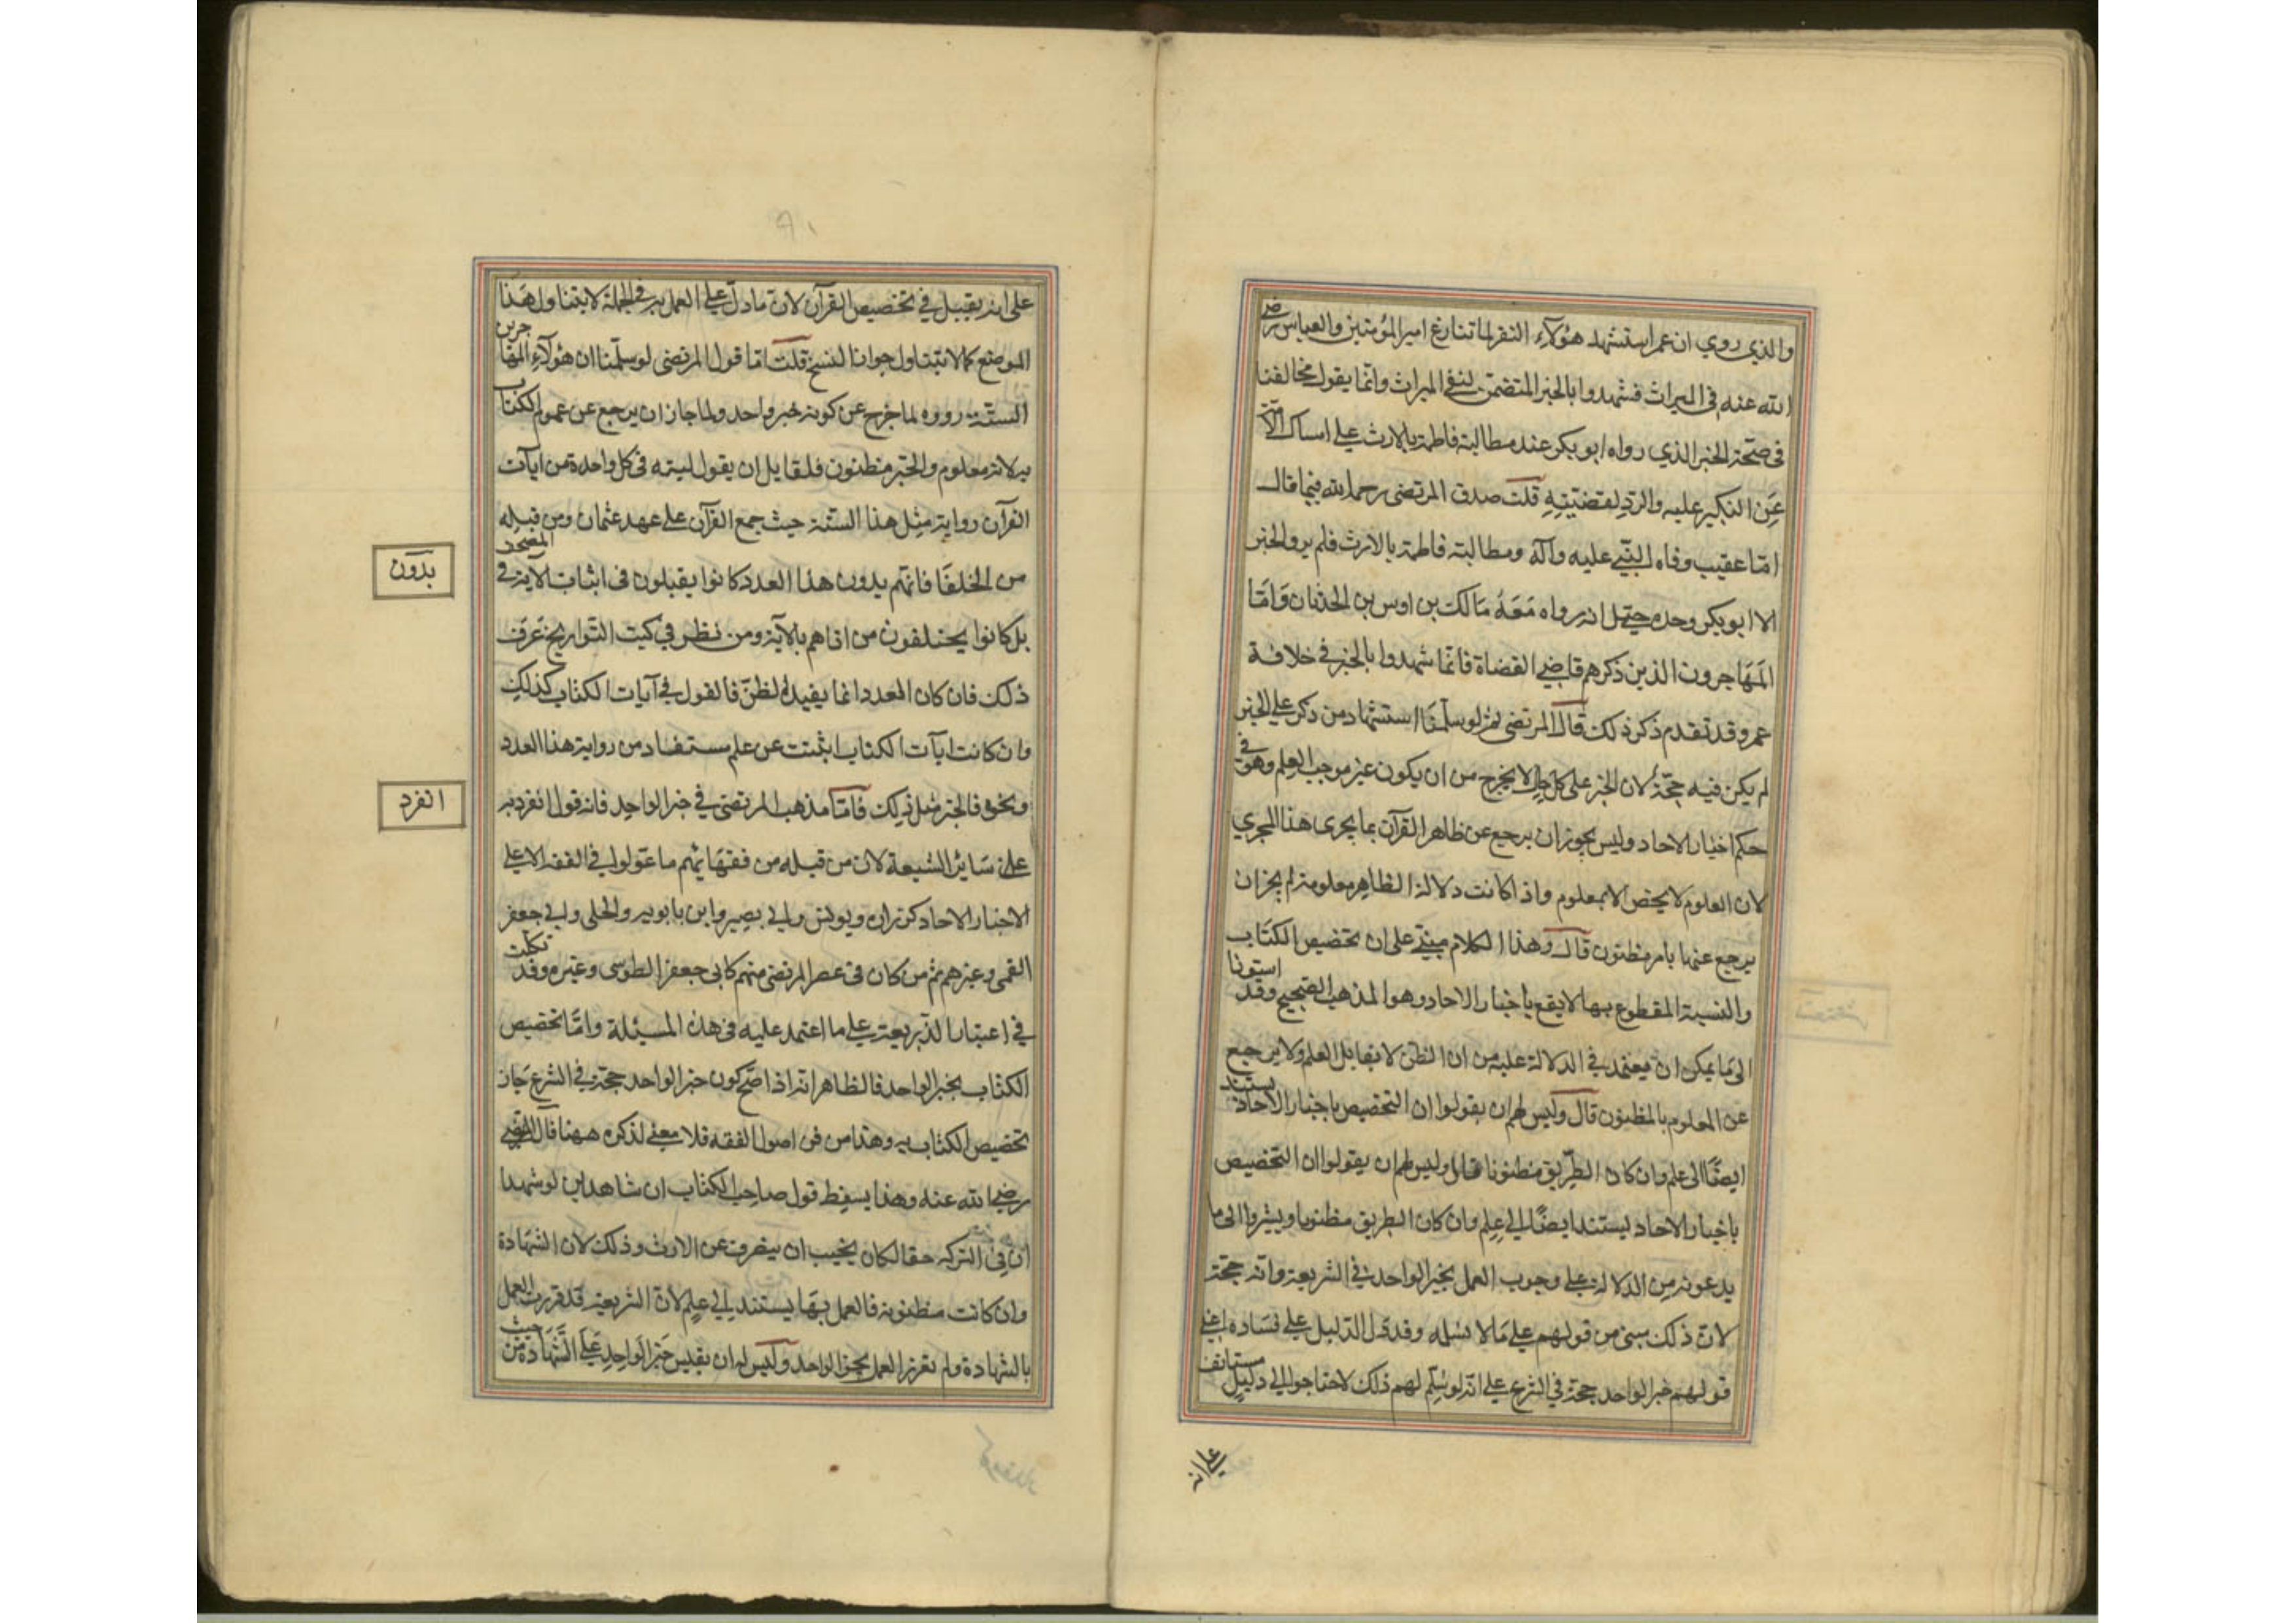 والذي روي ان عمر استشهد هؤلآء النفر لما تنازع امير المؤمنين والعباس رضي
الله عنه في الميراث فشهدوا بالخبر المتضمن لنفي الميراث وانما يقول مخالفنا
في صحة الخبر الذي رواه ابو بكر عند مطالبة فاطمة بالارث على امساك الامة
عن النكير عليه والرد لقضيته قلت صدق المرتضى رحمه الله فيما قال
امّا عقيب وفاه النبي عليه وآله ومطالبة فاطمة بالارث فلم يرو الخبر
الا ابو بكر وحده وحيتمل انه رواه معه مالك بن اوس بن الحدثان وامّا
المهاجرون الذين ذكرهم قاضي القضاة فانما شهدوا بالخبر في خلافة
عمر وقد تقدم ذكر ذلك قال المرتضى ثم لو سلّمنا استشهاد من ذكر على الخبر
لم يكن فيه حجّة لان الخبر على كل حال لا يخرج من ان يكون غير موجب العلم وهو في
حكم اخبار الاحاد وليس يجوز ان يرجع عن ظاهر القرآن بما يجرى هذا المجري
لان العلوم لا يخص الا بمعلوم واذا كانت دلالة الظاهر معلومة لم يجز ان
يرجع عنها بامر مظنون قال وهذا الكلام مبني على ان تخصيص الكتاب
والنسبة المقطوع بها لا يقع باخبار الاحاد وهو المذهب الصحيح وقد استونا
الى ما يمكن ان يعتمد في الدلالة عليه من ان الظن لا يقابل العلم ولا يرجع
عن المعلوم بالمظنون قال وليس لهم ان يقولوا ان التخصيص باخبار الاحاد يستند
ايضًا الى علم وان كان الطريق مظنونا قال وليس لهم ان يقولوا ان التخصيص
باخبار الاحاد يستند ايضًا الى علم وان كان الطريق مظنونا ويشروا الى ما
يدعونه من الدلالة على وجوب العمل بخبر الواحد في الشريعة وانه حجة
لان ذلك مبنى من قولهم على ما لا نسلمه وقد دل الدليل على فساده اعني
قولهم خبر الواحد حجة في الشرع على انه لو سلّم لهم ذلك لاحتاجوا الى دليل مستانف
على انه
٩١
على انه يقبل في تخصيص القرآن لان ما دل على العمل به في الجملة لا يتناول هذا
الموضع كما لا يتناول جواز النسخ قلت امّا قول المرتضى لو سلّمنا ان هؤلآء المهاجرين
الستة رووه لما خرج عن كونه خبر واحد ولما جاز ان يرجع عن عموم الكتاب
به لانه معلوم والخبر مظنون فلقايل ان يقول ليته في كل واحدة من ايآت
القرآن رواية مثل هذا الستة حيث جمع القرآن على عهد عثمان ومن قبله
من الخلفا فانهم بدون هذا العدد كانوا يقبلون في اثبات الاية في المصحف
بدون
بل كانوا يحلفون من اتاهم بالآية ومن نظر في كتب التواريخ عرف
ذلك فان كان العدد انما يفيد الظن فالقول في آيات الكتاب كذلك
وان كانت ايآت الكتاب اثبتت عن علم مستفاد من رواية هذا العدد
ونحوه فالخبر مثل ذلك فامّا مذهب المرتضى في خبر الواحد فانه قول انفرد به
انفرد
عن سائر الشيعة لان من قبله من فقهائهم ما عوّلوا في الفقه الا على
الاخبار الاحاد كزرارة ويونس وابي بصير وابن بابويه والحلى وابي جعفر
القمي وغيرهم ثم من كان في عصر المرتضى منهم كابي جعفر الطوسى وغيره وقد تكلمت
في اعتبار الذريعة على ما اعتمد عليه في هذه المسئلة وامّا تخصيص
الكتاب بخبر الواحد فالظاهر انه اذا صّح كون خبر الواحد حجة في الشرع جاز
تخصيص الكتاب به وهذا من فن اصول الفقه فلا معنى لذكره ههنا قال المرتضى
رضي الله عنه وهذا يسقط قول صاحب الكتاب ان شاهدين لو شهدا
ان في التركه حقا لكان يجب ان ينصرف عن الارث وذلك لان الشهادة
وان كانت مظنونة فالعمل بها يستند الى علم لان الشريعة قد قررت العمل
بالشهادة ولم تقرر العمل بخبر الواحد وليس له ان يقيس خبر الواحد على الشهادة من حيث